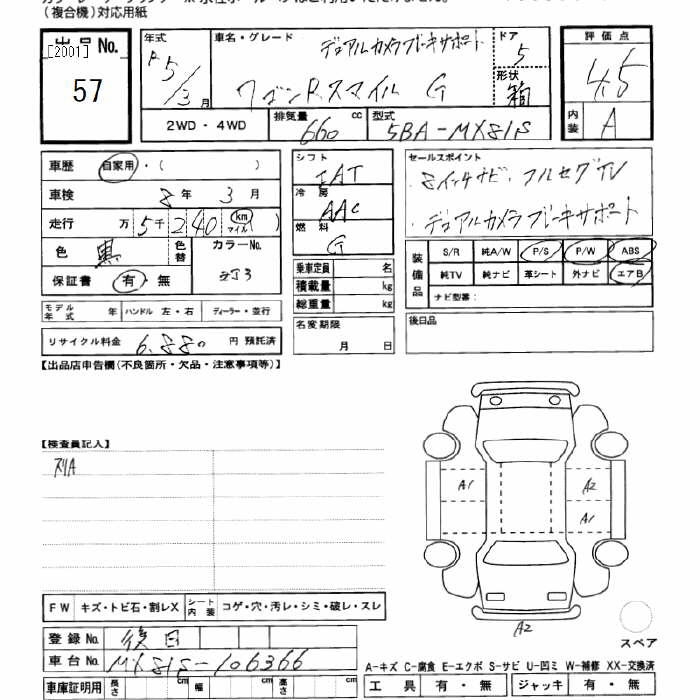 (複合機)対応用紙
出品No. [2001] 57
年式 R5/3月
車名・グレード デュアルカメラブレーキサポート
ワゴンRスマイル G
ドア 5
形状 箱
評価点 4.5
内装 A
2WD・4WD
排気量 660 cc
型式 5BA-MX81S
車歴 自家用・( )
車検 8年 3月
走行 万 5千 2 40 (km マイル)
色 黒 色替 カラーNo. ZJ3
保証書 有・無
シフト IAT
冷房 AAC
燃料 G
乗車定員 名
積載量 kg
総重量 kg
セールスポイント
8インチナビ・フルセグTV
デュアルカメラブレーキサポート
装備品 S/R 純A/W P/S P/W ABS
純TV 純ナビ 革シート 外ナビ エアB
ナビ型番:
モデル年式 年 ハンドル 左・右 ディーラー・並行
リサイクル料金 6,880 円 預託済
名変期限 月 日
後日品
【出品店申告欄(不良箇所・欠品・注意事項等)】
【検査員記入】
A1 A2
A1
A2
スペア
FW キズ・トビ石・割レX シート内装 コゲ・穴・汚レ・シミ・破レ・スレ
登録No. 後日
車台No. MX81S-106366
車庫証明用 長さ cm 幅 cm 高さ cm
A-キズ C-腐食 E-エクボ S-サビ U-凹ミ W-補修 XX-交換済
工具 有・無 ジャッキ 有・無